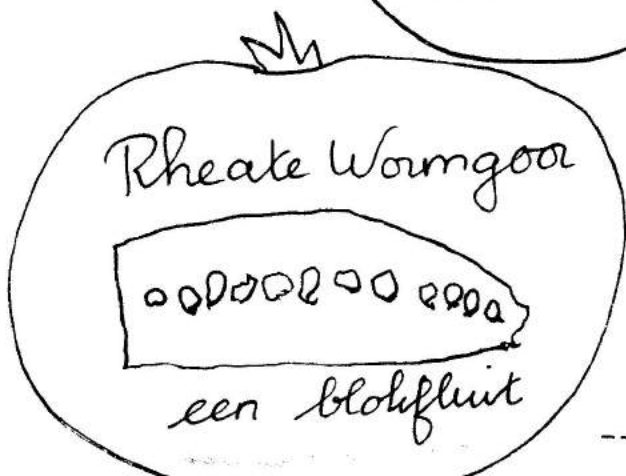 Rheate Wormgoor
een blokfluit